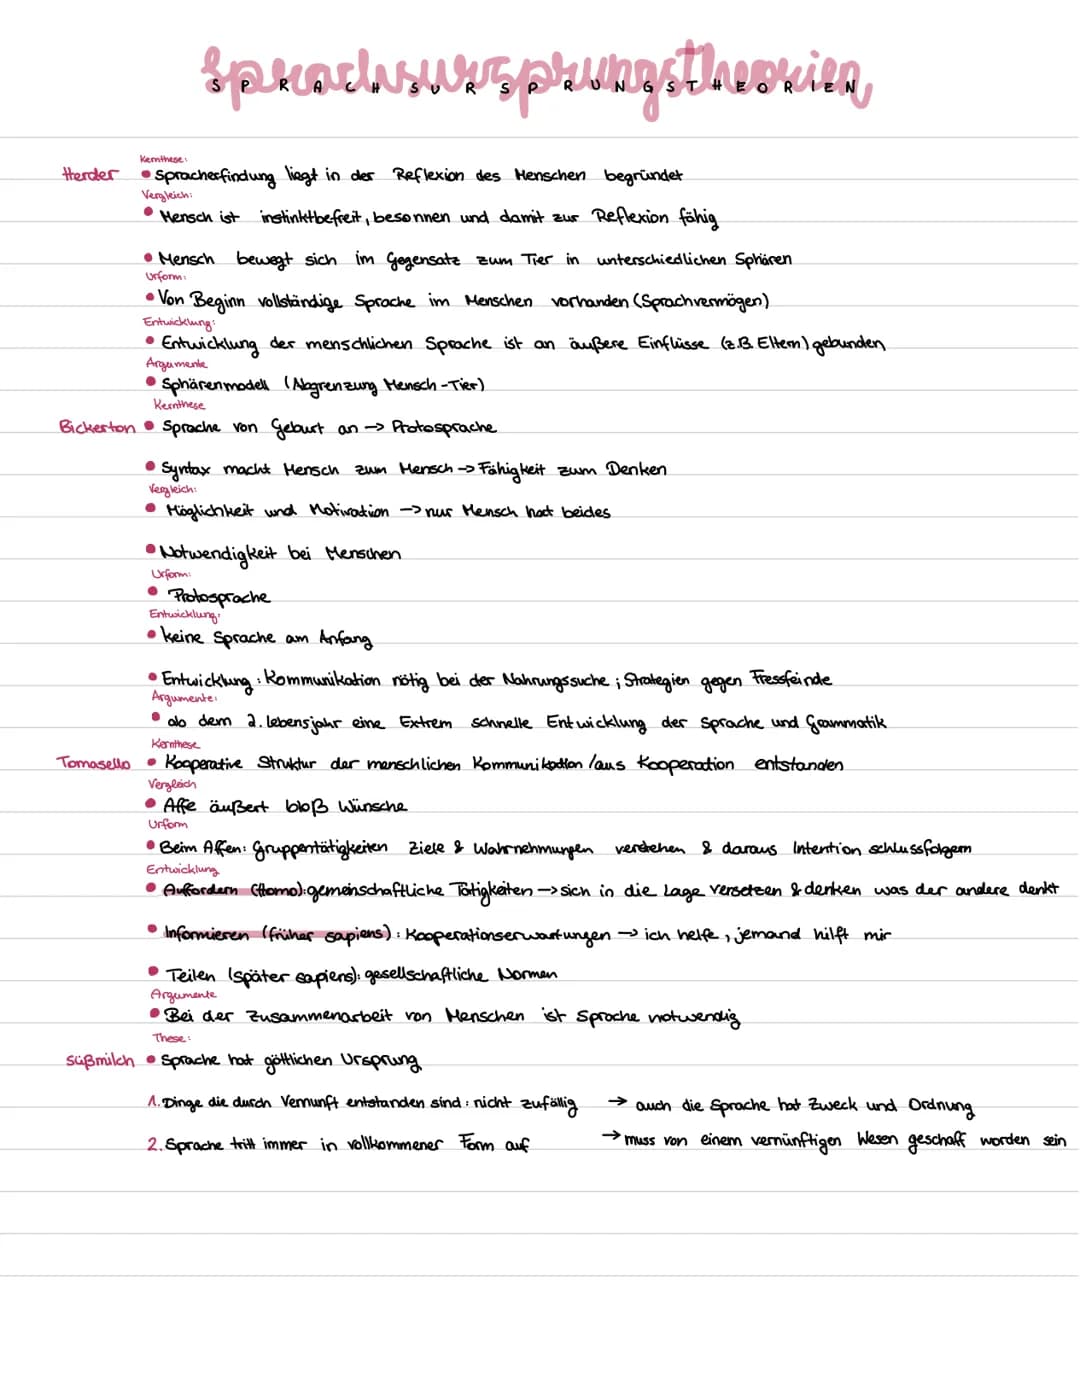 Sprachsursprungstheorien
SPRACHSURSPRUNGSTHEORIEN
Kernthese:
Herder • Spracherfindung liegt in der Reflexion des Menschen begründet
Vergleich:
• Mensch ist instinktbefreit, besonnen und damit zur Reflexion fähig
• Mensch bewegt sich im Gegensatz zum Tier in unterschiedlichen Sphären
Urform:
• Von Beginn vollständige Sprache im Menschen vorhanden (Sprachvermögen)
Entwicklung:
• Entwicklung der menschlichen Sprache ist an äußere Einflüsse (z.B. Eltern) gebunden
Argumente
• Sphärenmodell (Abgrenzung Mensch-Tier)
Kernthese
Bickerton • Sprache von Geburt an -> Protosprache
• Syntax macht Mensch zum Mensch -> Fähigkeit zum Denken
Vergleich:
• Möglichkeit und Motivation -> nur Mensch hat beides
• Notwendigkeit bei Menschen
Urform:
• Protosprache
Entwicklung:
• keine Sprache am Anfang
• Entwicklung: Kommunikation nötig bei der Nahrungssuche; Strategien gegen Fressfeinde
Argumente:
• ab dem 2. lebensjahr eine Extrem schnelle Entwicklung der Sprache und Grammatik
Kernthese
Tomasello • Kooperative Struktur der menschlichen Kommunikation /aus Kooperation entstanden
Vergleich
• Affe äußert bloß Wünsche
Urform
• Beim Affen: Gruppentätigkeiten Ziele & Wahrnehmungen verstehen & daraus Intention schlussfolgern
Entwicklung
• Auffordern (Homo): gemeinschaftliche Tätigkeiten -> sich in die Lage versetzen & denken was der andere denkt
• Informieren (früher sapiens): Kooperationserwartungen -> ich helfe, jemand hilft mir
• Teilen (später sapiens): gesellschaftliche Normen
Argumente
• Bei der Zusammenarbeit von Menschen ist Sprache notwendig
These:
Süßmilch • Sprache hat göttlichen Ursprung
1. Dinge die durch Vernunft entstanden sind: nicht zufällig -> auch die Sprache hat Zweck und Ordnung
2. Sprache tritt immer in vollkommener Form auf -> muss von einem vernünftigen Wesen geschaff worden sein